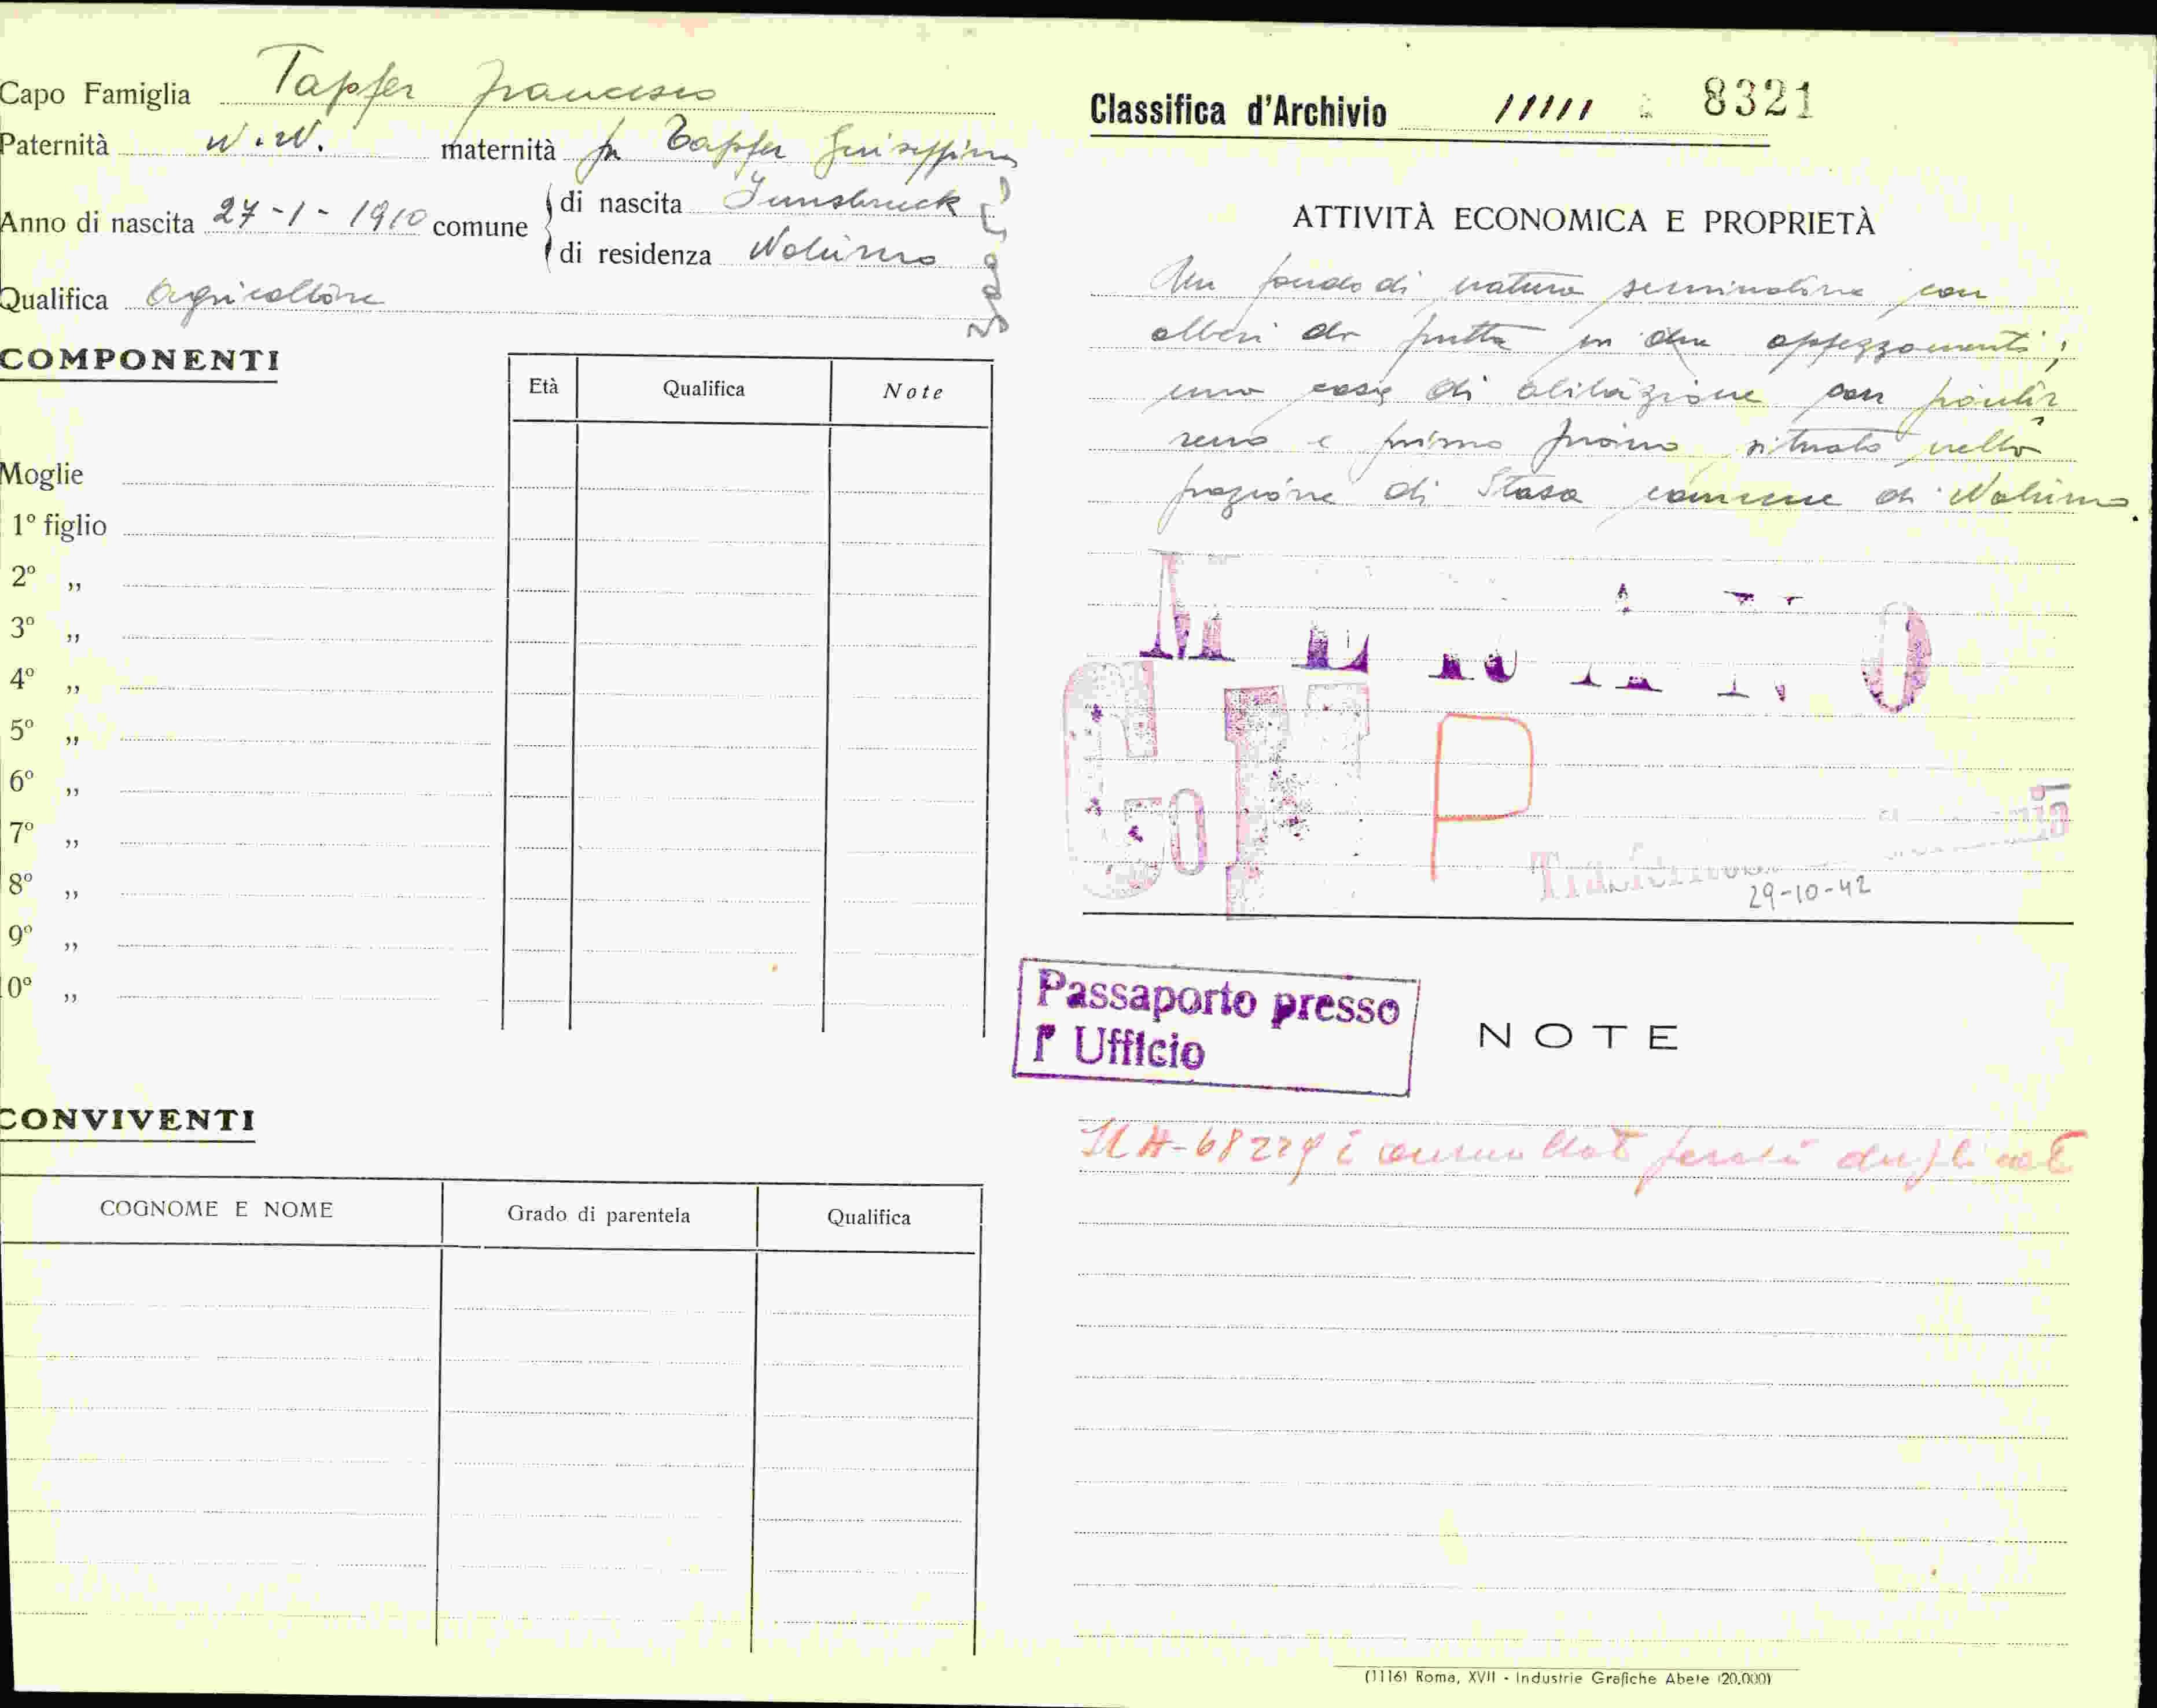 Capo Famiglia Tapfer Francesco
Paternità N.N. maternità fu Tapfer Giuseppina
Anno di nascita 27-1-1910 comune di nascita Innsbruck
di residenza Naturno
Qualifica Agricoltore
COMPONENTI
Età Qualifica Note
Moglie
1º figlio
2º „
3º „
4º „
5º „
6º „
7º „
8º „
9º „
10º „
CONVIVENTI
COGNOME E NOME Grado di parentela Qualifica
Classifica d'Archivio 8321
ATTIVITÀ ECONOMICA E PROPRIETÀ
Un fondo di natura seminativa con
alberi da frutta in due appezzamenti;
una casa di abitazione con pianter
reno e primo piano situato nella
frazione di Stava comune di Naturno.
P
29-10-42
Passaporto presso
l' Ufficio
NOTE
(1116) Roma, XVII - Industrie Grafiche Abete (20.000)